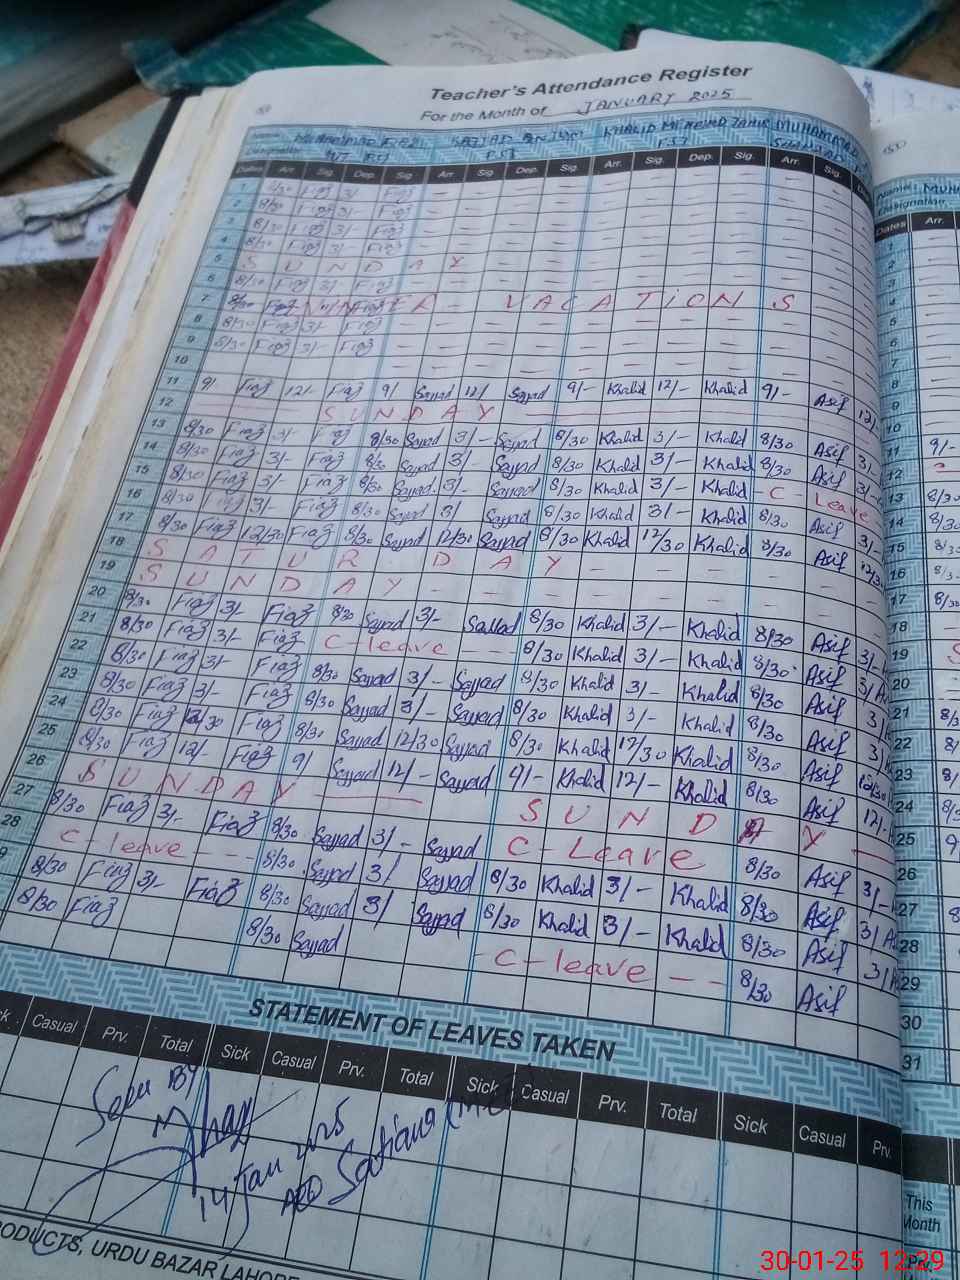 Teacher's Attendance Register
For the Month of JANUARY 2025
Dates Arr. Sig. Dep. Sig. Arr. Sig. Dep. Sig. Arr. Sig. Dep. Sig. Arr. Sig.
1 8/30 Fiaz 3/- Fiaz
2 8/30 Fiaz 3/- Fiaz
8/30 Fiaz 3/- Fiaz
4 8/30 Fiaz 3/- Fiaz
5 S U N D A Y
6 8/30 Fiaz 3/- Fiaz
7 8/30 Fiaz VACATIONS
8 8/30 Fiaz 3/- Fiaz
9 8/30 Fiaz 3/- Fiaz
10
11 9/ Fiaz 12/- Fiaz 9/ Sajjad 12/ Sajjad 9/- Khalid 12/- Khalid 9/- Asif 12/-
12 S U N D A Y
13 8/30 Fiaz 3/- Fiaz 8/30 Sajjad 3/- Sajjad 8/30 Khalid 3/- Khalid 8/30 Asif 3/-
14 8/30 Fiaz 3/- Fiaz 8/30 Sajjad 3/- Sajjad 8/30 Khalid 3/- Khalid 8/30 Asif 3/-
15 8/30 Fiaz 3/- Fiaz 8/30 Sajjad 3/- Sajjad 8/30 Khalid 3/- Khalid - C - Leave
16 8/30 Fiaz 3/- Fiaz 8/30 Sajjad 3/ Sajjad 8/30 Khalid 3/- Khalid 8/30 Asif 3/-
17 8/30 Fiaz 12/30 Fiaz 8/30 Sajjad 12/30 Sajjad 8/30 Khalid 12/30 Khalid 8/30 Asif 12/30
18 S A T U R D A Y
19 S U N D A Y
20 8/30 Fiaz 3/- Fiaz 8/30 Sajjad 3/- Sajjad 8/30 Khalid 3/- Khalid 8/30 Asif 3/-
21 8/30 Fiaz 3/- Fiaz C-leave 8/30 Khalid 3/- Khalid 8/30 Asif 3/
22 8/30 Fiaz 3/- Fiaz 8/30 Sajjad 3/- Sajjad 8/30 Khalid 3/- Khalid 8/30 Asif 3/
23 8/30 Fiaz 3/- Fiaz 8/30 Sajjad 3/- Sajjad 8/30 Khalid 3/- Khalid 8/30 Asif 3/
24 8/30 Fiaz 12/30 Fiaz 8/30 Sajjad 12/30 Sajjad 8/30 Khalid 12/30 Khalid 8/30 Asif 12/30
25 8/30 Fiaz 12/- Fiaz 9/ Sajjad 12/- Sajjad 9/- Khalid 12/- Khalid 8/30 Asif 12/-
26 S U N D A Y S U N D A Y
27 8/30 Fiaz 3/- Fiaz 8/30 Sajjad 3/- Sajjad C-Leave 8/30 Asif 3/-
28 C-leave 8/30 Sajjad 3/ Sajjad 8/30 Khalid 3/- Khalid 8/30 Asif 3/
9 8/30 Fiaz 3/- Fiaz 8/30 Sajjad 3/ Sajjad 8/30 Khalid 3/- Khalid 8/30 Asif 3/
8/30 Fiaz 8/30 Sajjad - C-leave - - 8/30 Asif
STATEMENT OF LEAVES TAKEN
Casual Prv. Total Sick Casual Prv. Total Sick Casual Prv. Total Sick Casual Prv.
Seen BY
14 Jan 2025
AEO Satiana
RODUCTS, URDU BAZAR LAHORE
Name: MUHA
Designation.
Dates Arr.
1
2
3
4
5
6
7
8
9
10
11 9/-
12
13 8/30
14 8/30
15 8/30
16 8/3
17 8/30
18
19 S
20
21 8/3
22 8/
23 8/3
24 8/3
25 9
26
27 8
28
29
30
31
This
Month
Prv.
30-01-25 12:29